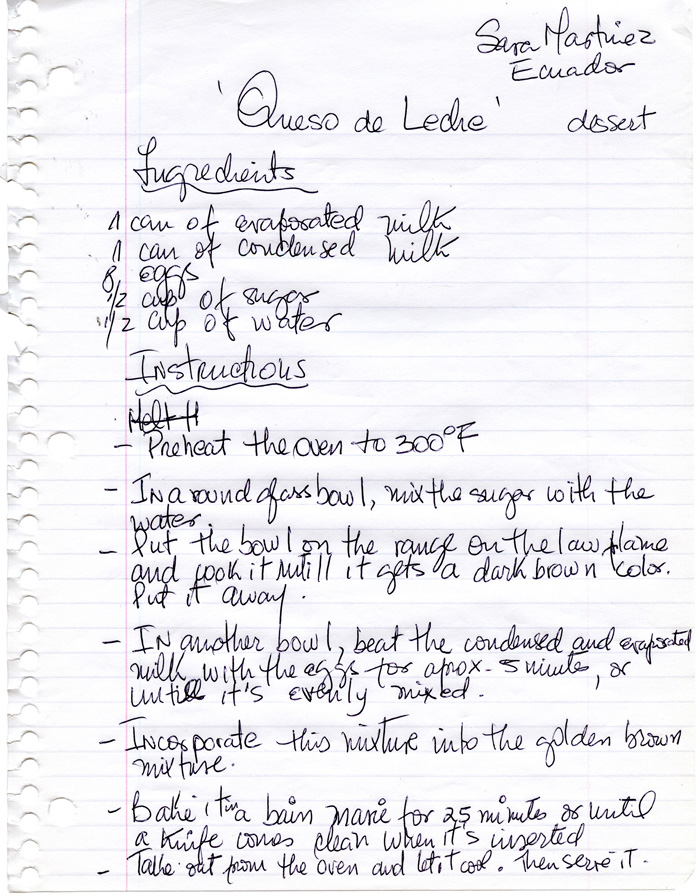 Sara Martinez
Ecuador
'Queso de Leche' dessert
Ingredients
1 can of evaporated milk
1 can of condensed milk
8 eggs
1/2 cup of sugar
1/2 cup of water
Instructions
Melt H
- Preheat the oven to 300°F
- In a round glass bowl, mix the sugar with the
water.
- Put the bowl on the range on the law flame
and cook it untill it gets a dark brown color.
Put it away.
- In another bowl, beat the condensed and evaporated
milk with the eggs for aprox. 5 minutes, or
untill it's evenly mixed.
- Incorporate this mixture into the golden brown
mixture.
- Bake it in a bain marie for 25 minutes or until
a knife comes clean when it's inserted
- Take out from the oven and let it cool. Then serve it.